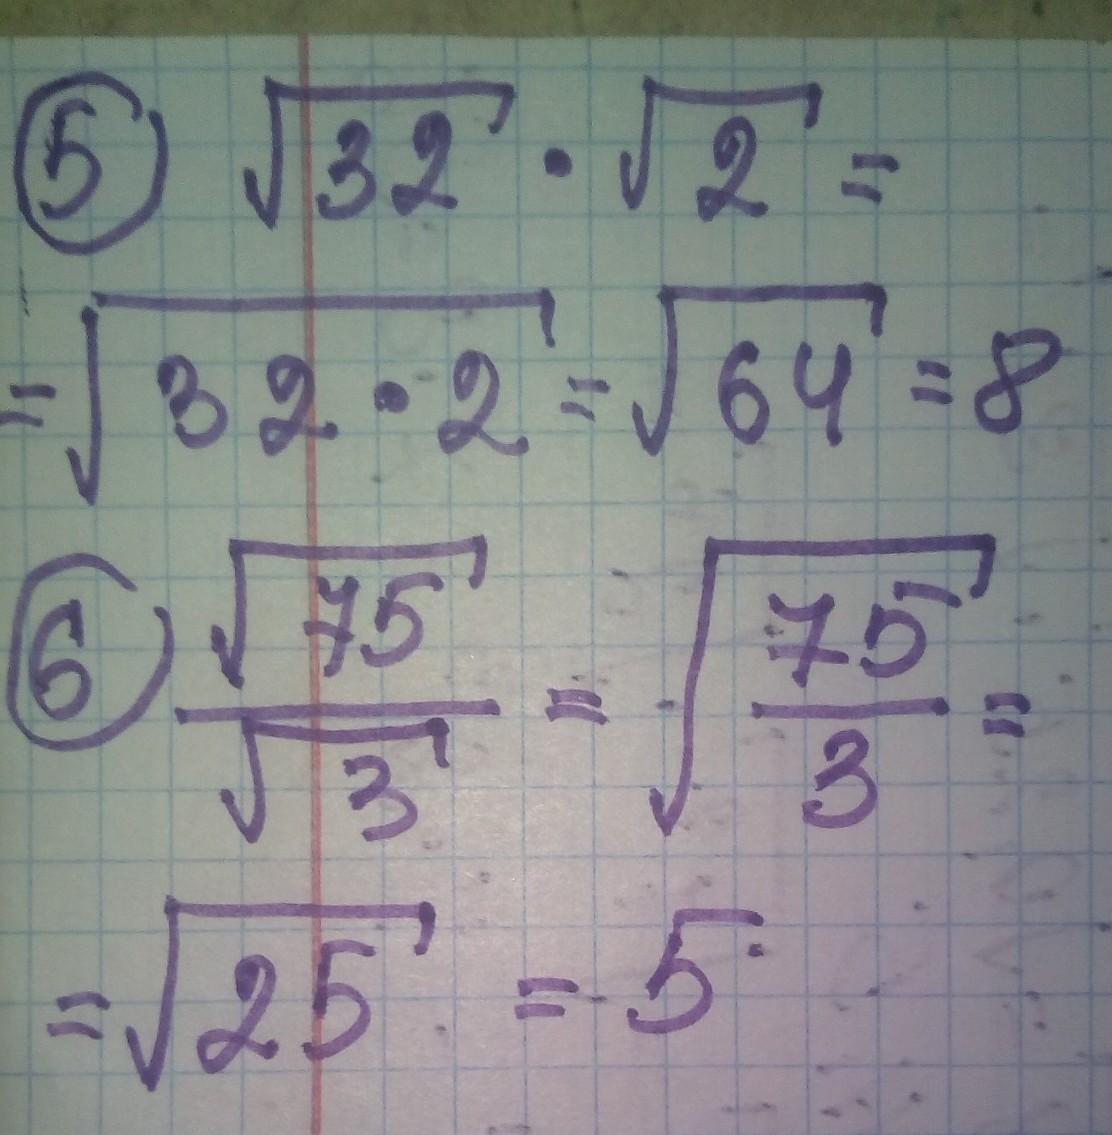 5) √32 · √2 =
= √32 · 2 = √64 = 8
6) √75 / √3 = √75/3 =
= √25 = 5